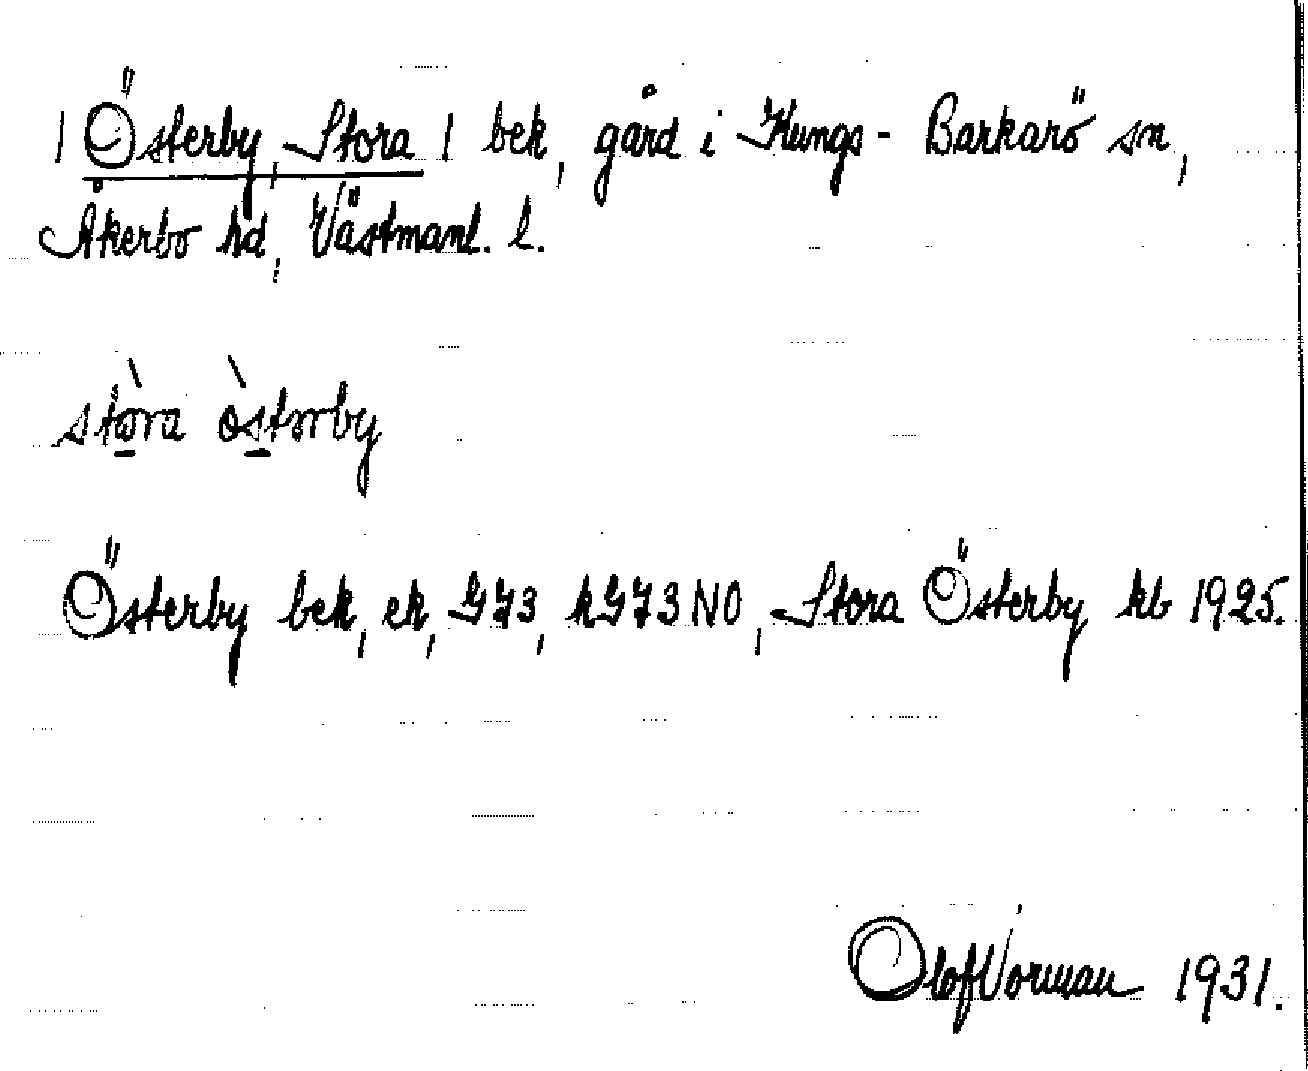 | Österby, Stora | bek, gård i Kungs-Barkarö sn,
Åkerbo hd, Västmanl. l.
stòra òstərby
Österby bek, ek, G73, hG73NO, Stora Österby kb 1925.
Olof Vorman 1931.